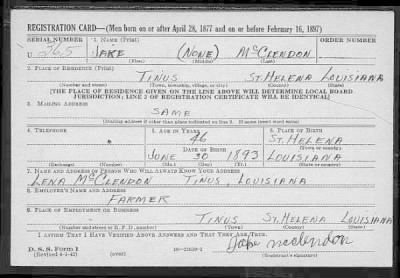 REGISTRATION CARD—(Men born on or after April 28, 1877 and on or before February 16, 1897)
SERIAL NUMBER 1. NAME (Print) ORDER NUMBER
U 265 JAKE (NONE) McCLENDON
(First) (Middle) (Last)
2. PLACE OF RESIDENCE (Print)
TINUS ST. HELENA LOUISIANA
(Number and street) (Town, township, village, or city) (County) (State)
[THE PLACE OF RESIDENCE GIVEN ON THE LINE ABOVE WILL DETERMINE LOCAL BOARD
JURISDICTION; LINE 2 OF REGISTRATION CERTIFICATE WILL BE IDENTICAL]
3. MAILING ADDRESS
SAME
[Mailing address if other than place indicated on line 2. If same insert word same]
4. TELEPHONE 5. AGE IN YEARS 6. PLACE OF BIRTH
46 ST. HELENA
DATE OF BIRTH (Town or county)
JUNE 30 1893 LOUISIANA
(Exchange) (Number) (Mo.) (Day) (Yr.) (State or country)
7. NAME AND ADDRESS OF PERSON WHO WILL ALWAYS KNOW YOUR ADDRESS
LENA McCLENDON TINUS, LOUISIANA
8. EMPLOYER'S NAME AND ADDRESS
FARMER
9. PLACE OF EMPLOYMENT OR BUSINESS
TINUS ST. HELENA LOUISIANA
(Number and street or R. F. D. number) (Town) (County) (State)
I AFFIRM THAT I HAVE VERIFIED ABOVE ANSWERS AND THAT THEY ARE TRUE.
D. S. S. Form 1
(Revised 4-1-42) (over) 16—21630-2 Jake mcclendon
(Registrant's signature)